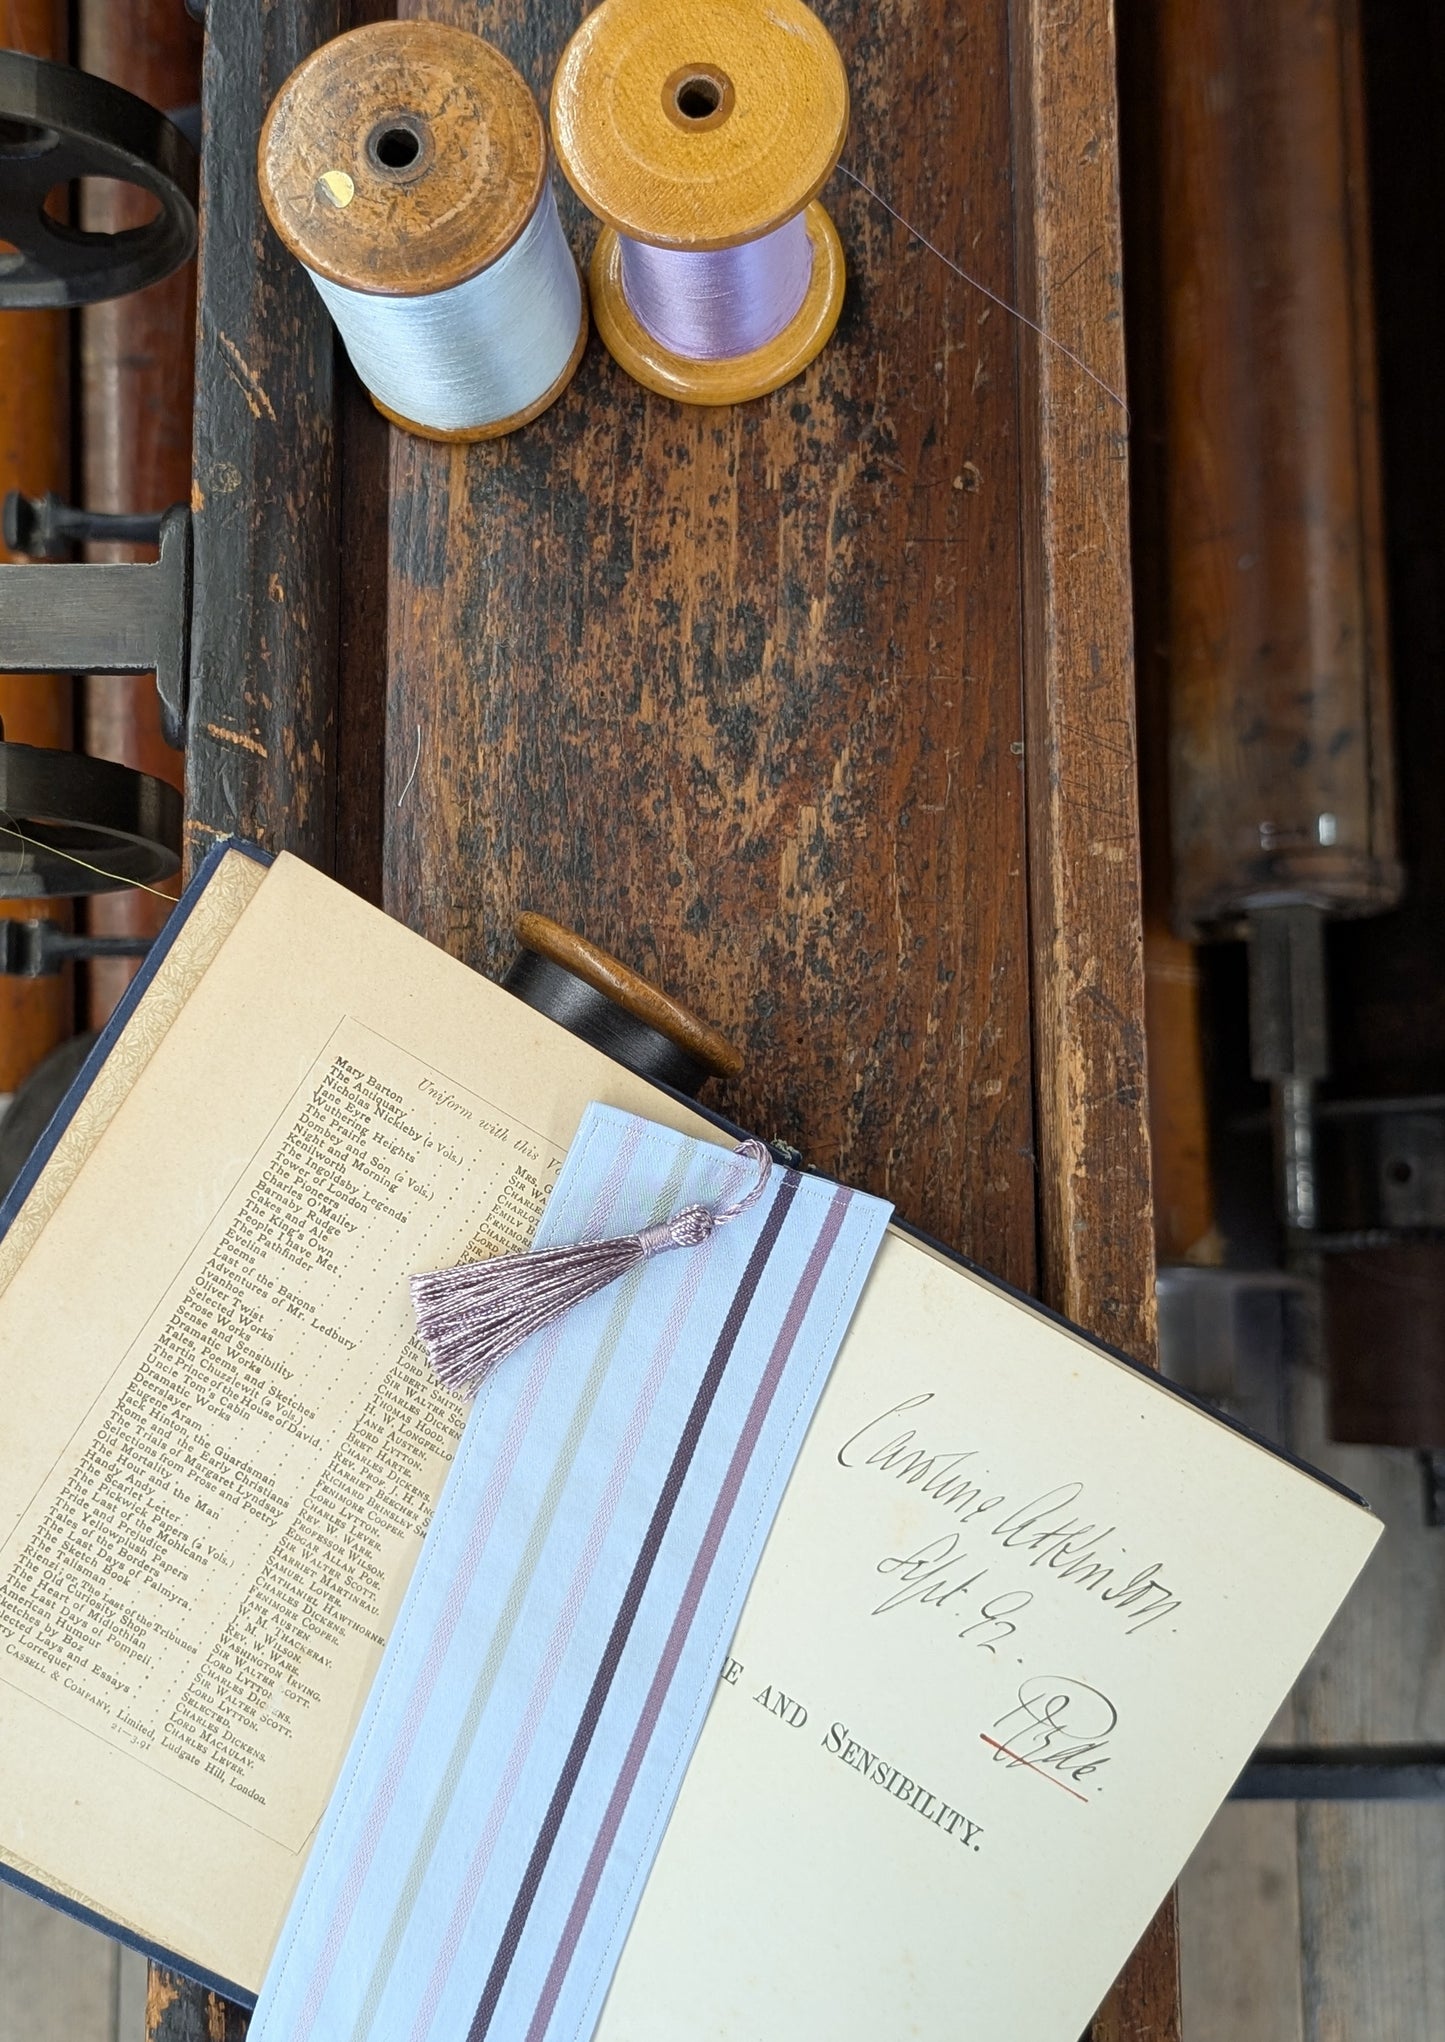 Uniform with this Vo
Mary Barton MRS. G
The Antiquary SIR WA
Nicholas Nickleby (2 Vols.) CHARLES
Jane Eyre CHARLOT
Wuthering Heights EMILY B
The Prairie FENIMORE
Dombey and Son (2 Vols.) CHARLES
Night and Morning LORD
Kenilworth SIR W
The Ingoldsby Legends
Tower of London
The Pioneers
Charles O'Malley
Barnaby Rudge
Cakes and Ale
The King's Own
People I have Met
The Pathfinder
Evelina
Poems
Last of the Barons LORD LYTTO
Adventures of Mr. Ledbury ALBERT SMITH
Ivanhoe SIR WALTER SCO
Oliver Twist CHARLES DICKEN
Selected Works THOMAS HOOD.
Prose Works H. W. LONGFELLO
Sense and Sensibility JANE AUSTEN.
Dramatic Works LORD LYTTON.
Tales, Poems, and Sketches BRET HARTE.
Martin Chuzzlewit (2 Vols.) CHARLES DICKENS.
The Prince of the House of David REV. PROF. J. H. ING
Uncle Tom's Cabin HARRIET BEECHER S
Dramatic Works RICHARD BRINSLEY SH
Deerslayer FENIMORE COOPER.
Eugene Aram LORD LYTTON.
Jack Hinton, the Guardsman CHARLES LEVER.
Rome and the Early Christians REV. W. WARE.
The Trials of Margaret Lyndsay PROFESSOR WILSON.
Selections from Prose and Poetry EDGAR ALLAN POE.
Old Mortality SIR WALTER SCOTT.
The Hour and the Man HARRIET MARTINEAU.
Handy Andy SAMUEL LOVER.
The Scarlet Letter NATHANIEL HAWTHORNE.
The Pickwick Papers (2 Vols.) CHARLES DICKENS.
The Last of the Mohicans FENIMORE COOPER.
Pride and Prejudice JANE AUSTEN.
The Yellowplush Papers W. M. THACKERAY.
Tales of the Borders J. M. WILSON.
The Last Days of Palmyra REV. W. WARE.
The Sketch Book WASHINGTON IRVING.
The Talisman SIR WALTER SCOTT.
Rienzi, or The Last of the Tribunes LORD LYTTON.
The Old Curiosity Shop CHARLES DICKENS.
The Heart of Midlothian SIR WALTER SCOTT.
The Last Days of Pompeii LORD LYTTON.
American Humour SELECTED.
Sketches by Boz CHARLES DICKENS.
lected Lays and Essays LORD MACAULAY.
rry Lorrequer CHARLES LEVER.
CASSELL & COMPANY, Limited, Ludgate Hill, London.
21—3.91
Caroline Atkinson.
Sept. 92.
Ryde.
E AND SENSIBILITY.